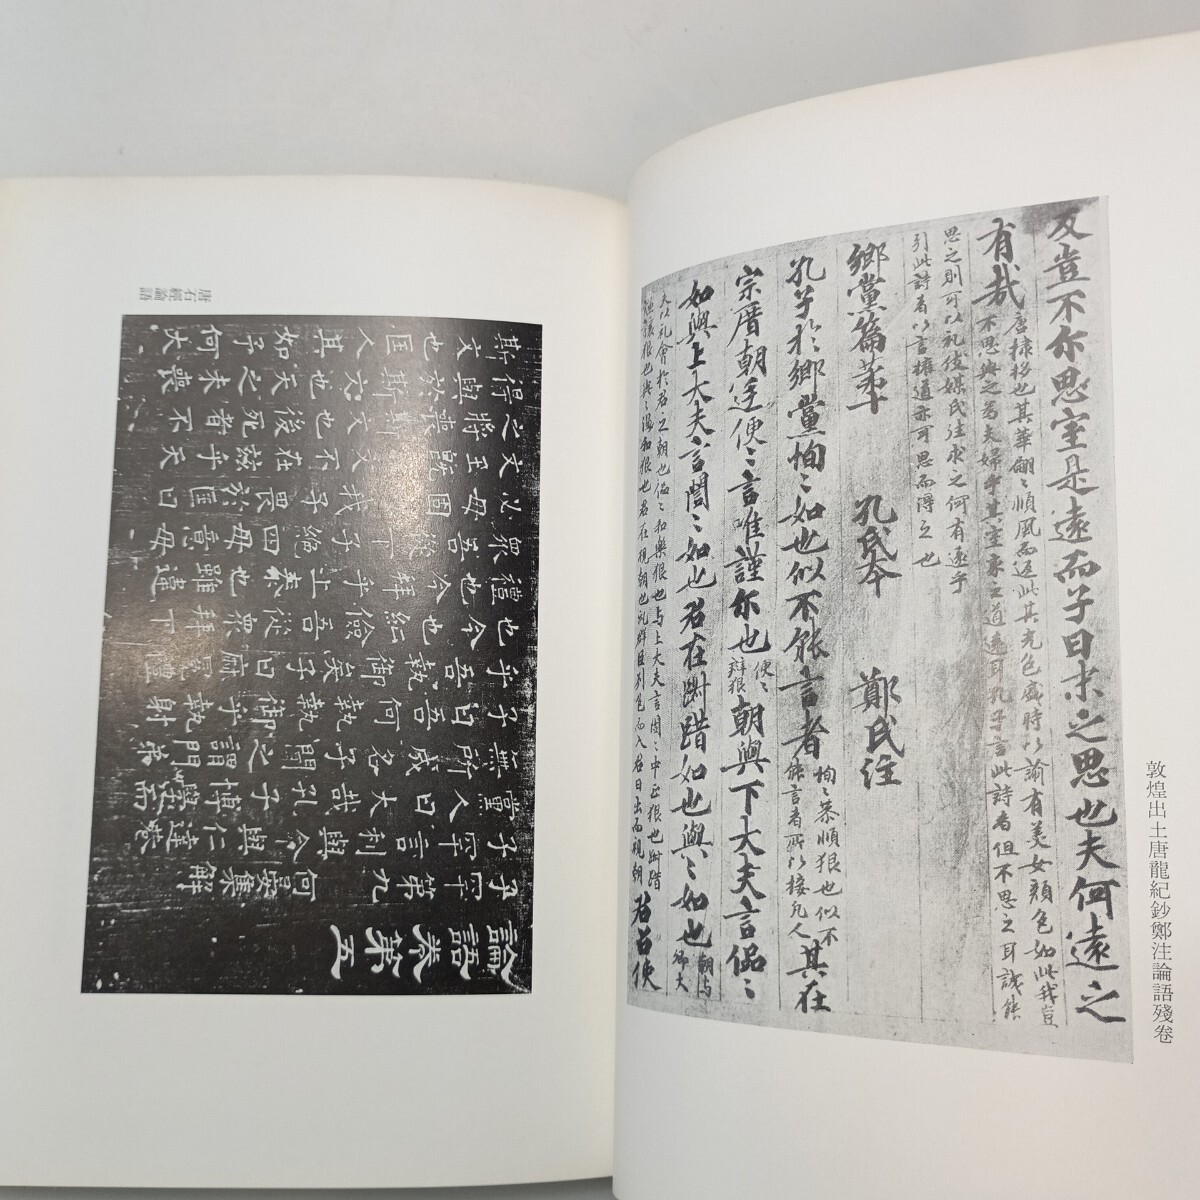 敦煌出土唐龍紀鈔鄭注論語殘卷
反豈不尔思室是遠而子曰未之思也夫何遠之
有哉
唐棣栘也其華翩〻順風而返此其光色盛時以諭有美女顏色如此我豈
不思與之為夫婦乎其室家之道遠耳孔子言此詩者但不思之耳誠能
思之則可以礼使媒氏往求之何有遠乎
引此詩者以言權道亦可思而得之也
鄉黨篇苐十 孔氏本 鄭氏注
孔子於鄉黨恂〻如也似不能言者
恂〻恭順狠也似不
能言者所以接凡人
其在
宗庿朝廷便〻言唯謹尔也
便〻
辯狠
朝與下大夫言侃〻
如與上大夫言誾〻如也君在踧踖如也與〻如也
朝与
卿大
夫以礼會於君之朝也侃〻和樂狠也与上大夫言誾〻中正狠也踧踖
讓狠也與〻温和狠也君在視朝也群臣列色而入君日出而視朝
君召使
唐石經論語
論語卷第五
子罕第九 何晏集解
子罕言利與命與仁達巷
黨人曰大哉孔子博學而
無所成名子聞之謂門弟
子曰吾何執執御乎執射
乎吾執御矣子曰麻冕禮
也今也純儉吾從眾拜下
禮也今拜乎上泰也雖違
眾吾從下子絕四毋意毋
必毋固毋我子畏於匡曰
文王既沒文不在茲乎天
之將喪斯文也後死者不
得與於斯文也天之未喪
斯文也匡人其如予何大